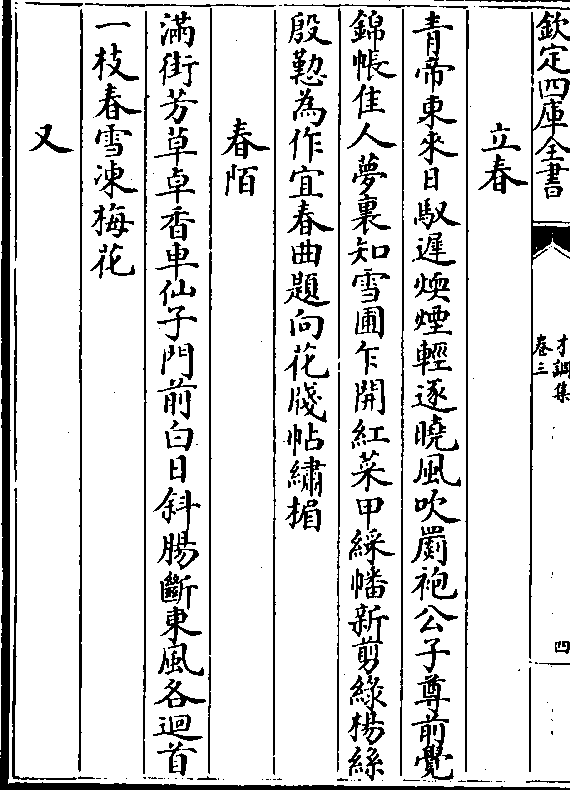 欽定四庫全書
才調集
卷三
四
立春
青帝東來日馭遲煥煙輕逐曉風吹罽袍公子尊前覺
錦帳佳人夢裏知雪圃乍開紅菜甲綵幡新剪綠楊絲
殷懃為作宜春曲題向花牋帖繡楣
春陌
滿街芳草卓香車仙子門前白日斜腸斷東風各迴首
一枝春雪凍梅花
又